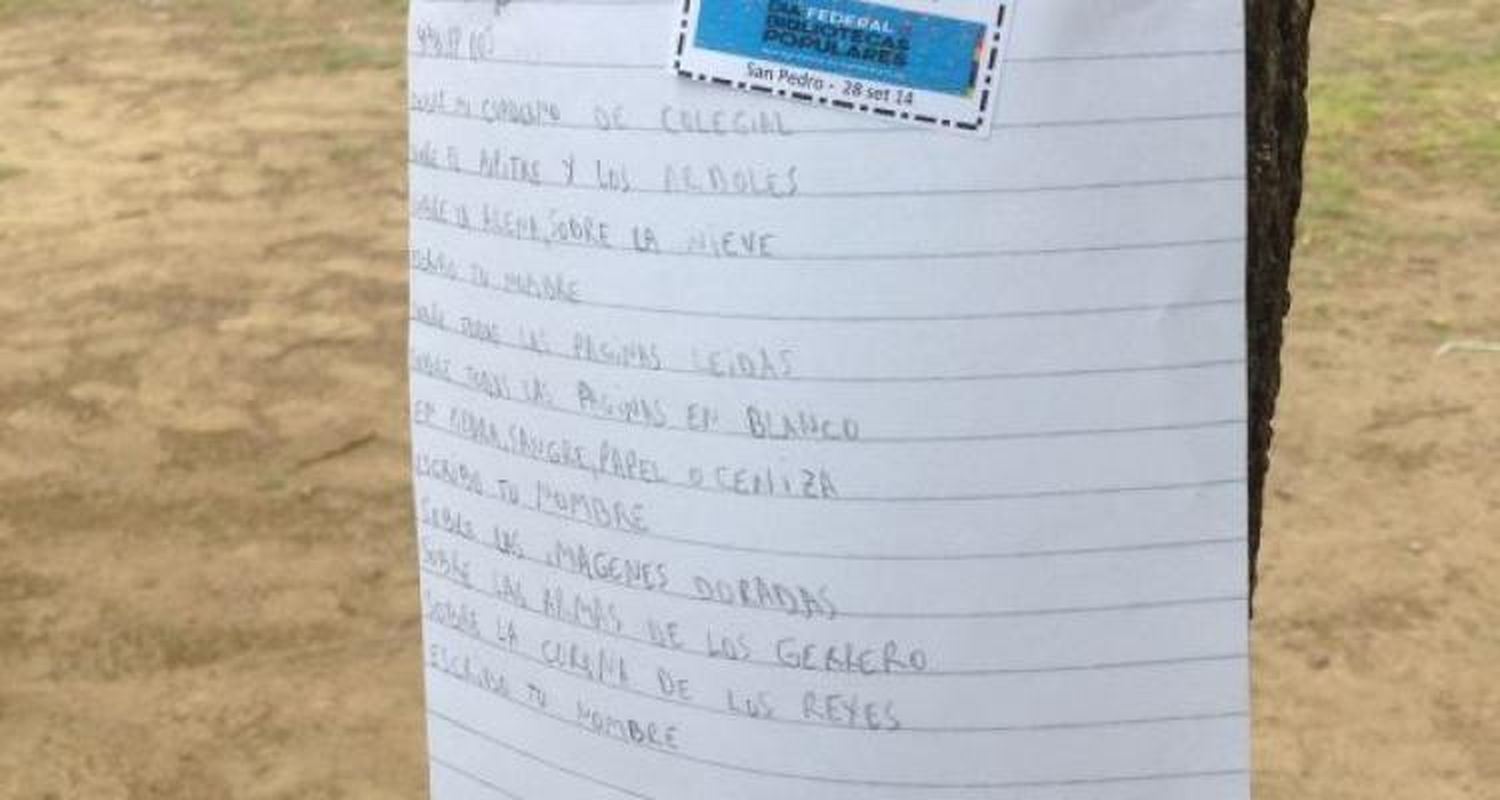 DIA FEDERAL
BIBLIOTECAS
POPULARES
San Pedro - 28 set 14
DE COLEGIAL
Y LOS ARBOLES
SOBRE LA NIEVE
TU NOMBRE
LAS PAGINAS LEIDAS
SOBRE TODAS LAS PAGINAS EN BLANCO
EN PIEDRA, SANGRE, PAPEL O CENIZA
ESCRIBO TU NOMBRE
SOBRE LAS IMAGENES DORADAS
SOBRE LAS ARMAS DE LOS GERRERO
SOBRE LA CORONA DE LOS REYES
ESCRIBO TU NOMBRE